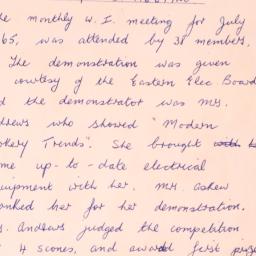 he monthly W.I. meeting for July
65, was attended by 38 members.
The demonstration was given
courtesy of the Eastern Elec. Board
d the demonstrator was Mrs.
drews who showed "Modern
okery Trends". She brought
me up-to-date electrical
uipment with her. Mrs. Askew
anked her for her demonstration.
s. Andrews judged the competition
4 scones, and award first prize